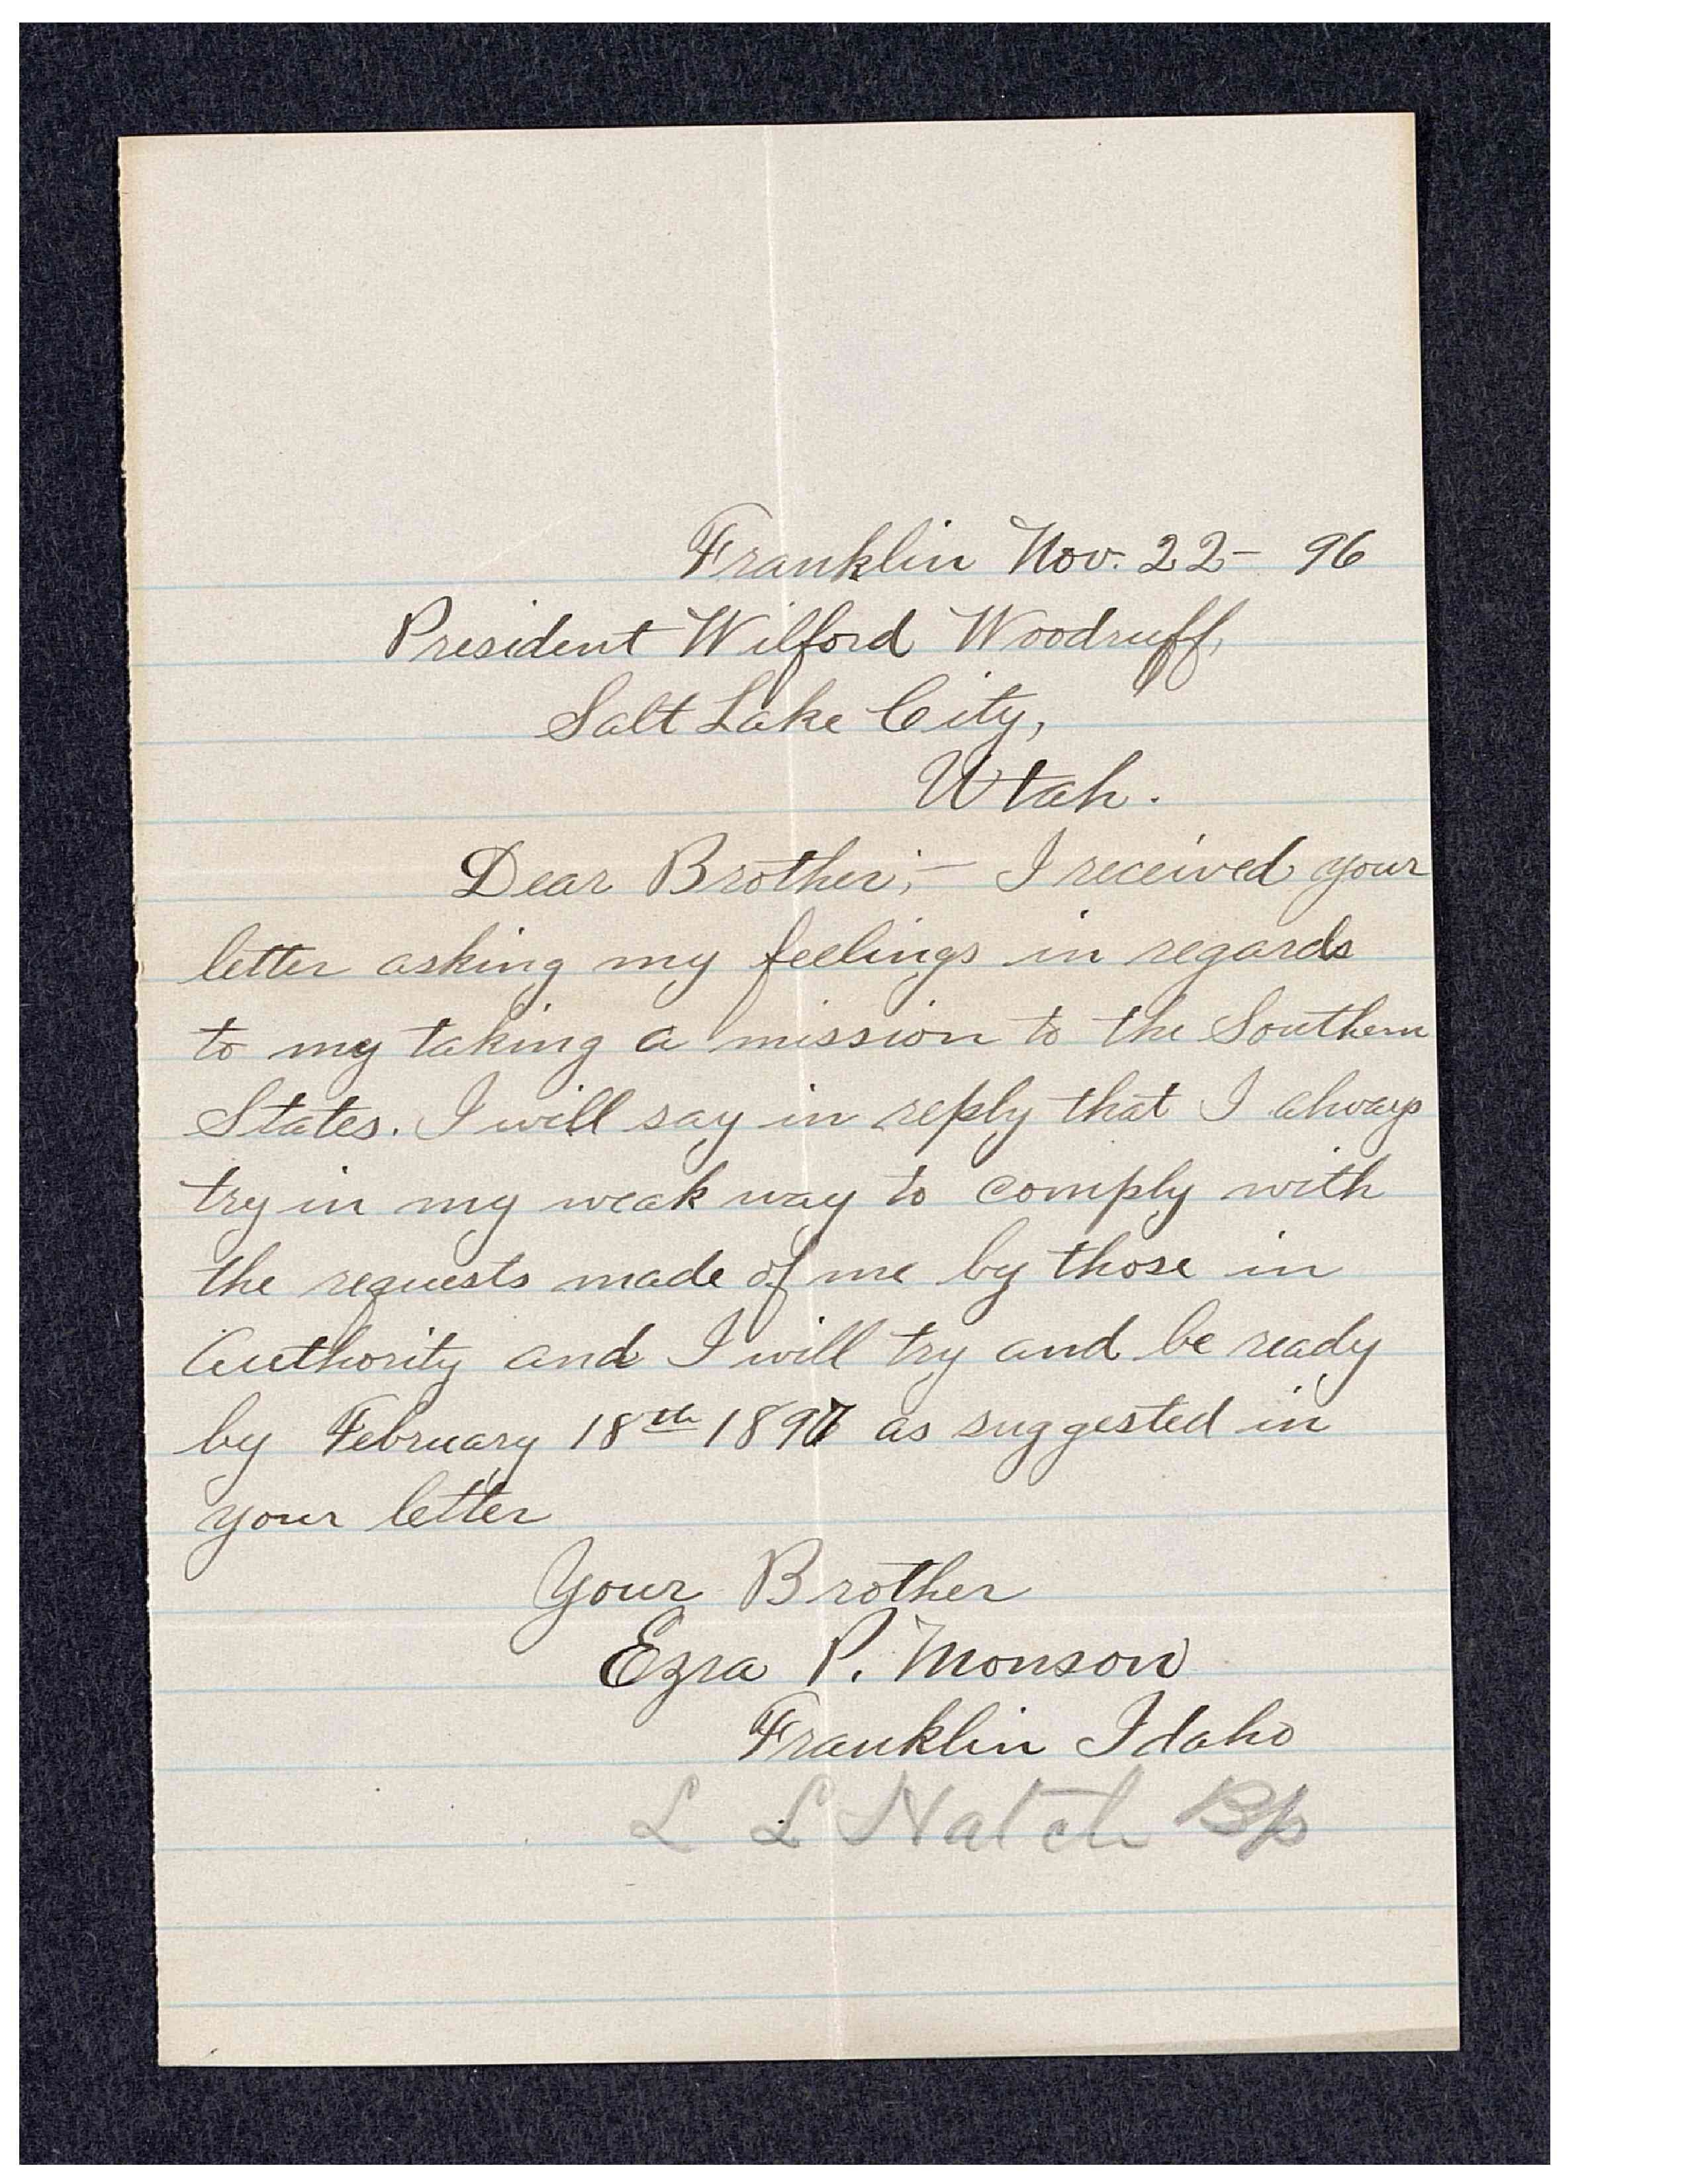 Franklin Nov. 22 - 96
President Wilford Woodruff,
Salt Lake City,
Utah.
Dear Brother;- I received your
letter asking my feelings in regards
to my taking a mission to the Southern
States. I will say in reply that I always
try in my weak way to comply with
the requests made of me by those in
Authority and I will try and be ready
by February 18th 1897 as suggested in
your letter
Your Brother
Ezra P. Monson
Franklin Idaho
L L Hatch Bp